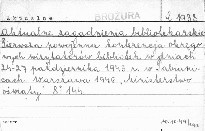 Aktualne BROSZURA I 1798
Aktualne zagadnienia bibliotekarskie
Pierwsza powojenna konferencja okręgo-
wych wizytatorów bibliotek w dniach
24-27 października 1945 r. w
cach Warszawa 1946, Ministerstwo
Oświaty, 8° 144